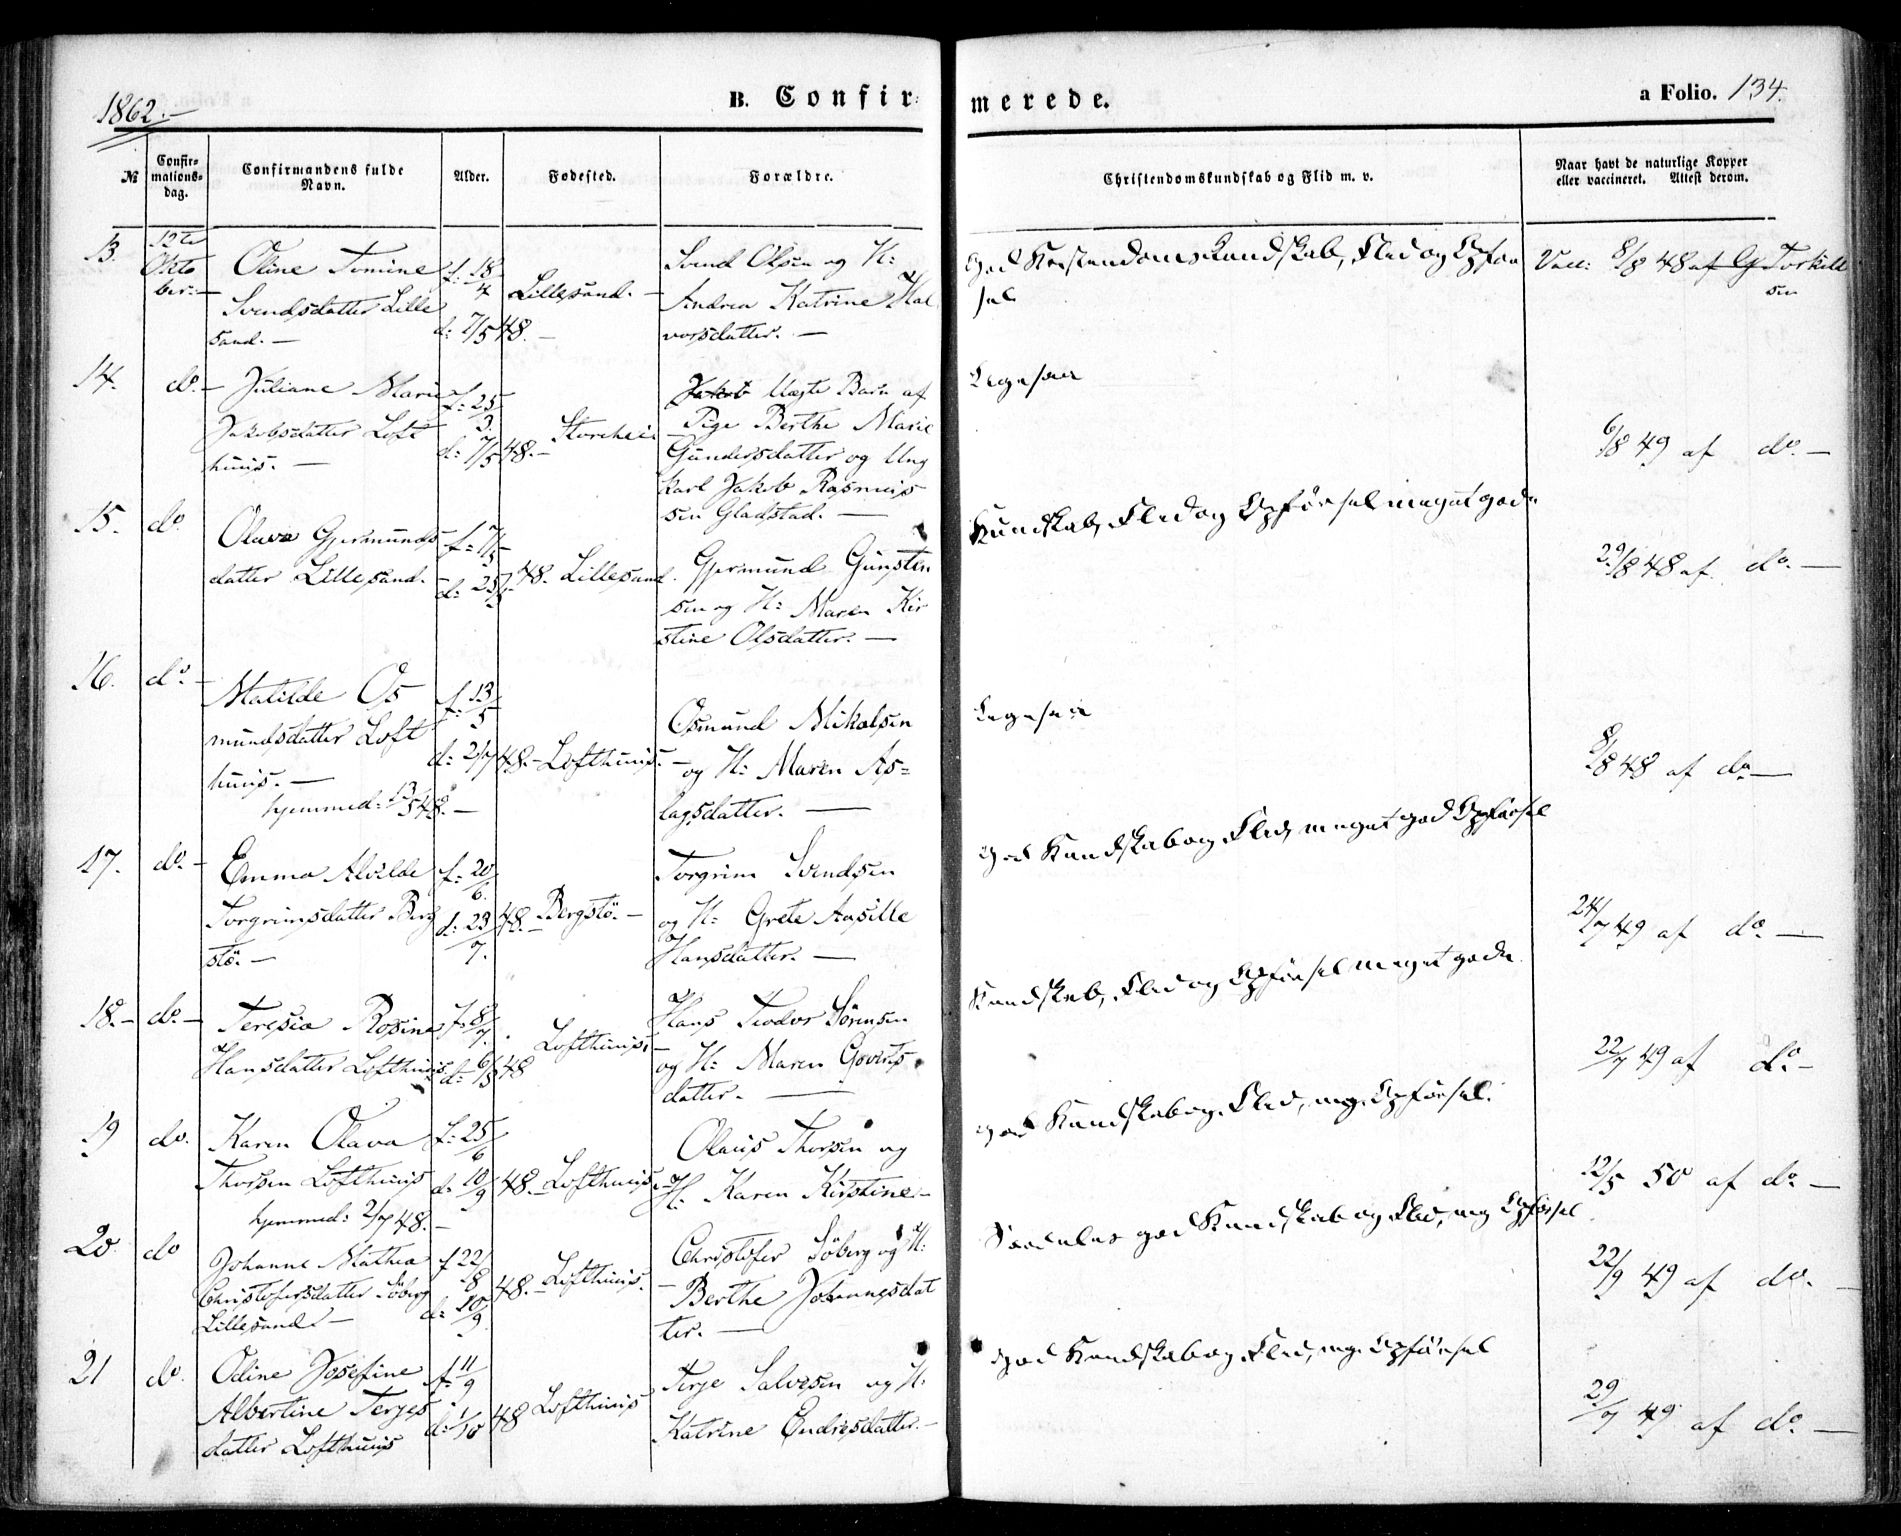 1862.-
B. Confir-
merede.
a Folio. 134.
№
Confir-
mations-
dag.
Confirmandens fulde
Navn.
Alder.
Fødested.
Forældre.
Christendomskundskab og Flid m. v.
Naar havt de naturlige Kopper
eller vaccineret. Attest derom.
13.
12te
Okto
ber.-
Oline Tomine
Svendsdatter Lille
sand. -
f: 18/4
d: 7/5 48. -
Lillesand. -
Svend Olsen og H:
Andrea Katrine Hal
vorsdatter. -
god Kristendomskundskab, Flid og Opfør
sel
Vacc: 8/8 48 af G Torkild
sen
14.
do. -
Juliane Marie
Jakobsdatter Loft
huus. -
f: 25/3.
d: 7/5 48. -
Uægte Barn af
Pige Berthe Marie
Gundersdatter og Ung
karl Jakob Rasmus
sen Gladstad. -
Ligesaa
6/8 49 af do. -
15.
do.
Olava Gjermunds
datter Lillesand. -
f: 7/5
d: 25/5 48.
Lillesand.
Gjermund Gunsten
sen og H: Maren Kir
stine Olsdatter. -
Kundskab, Flid og Opførsel meget gode
29/8 48 af do. -
16.
do. -
Matilde Os
mundsdatter Loft
huus. -
hjemmed: 13/5 48. -
f: 13/5
d: 2/7 48. -
Lofthuus. -
Osmund Mikalsen
og H: Maren As-
lagsdatter. -
Ligesaa
8/8 48 af do -
17.
do. -
Emma Alvilde
Torgrimsdatter Berg
stö. -
f: 20/6.
d: 23/7. 48. -
Bergstö. -
Torgrim Svendsen
og H: Grete Aasille
Hansdatter. -
god Kundskab og Flid, meget god Opførsel
24/7 49 af do. -
18. -
do. -
Teresia Rosine
Hansdatter Lofthuus
f: 8/7.
d: 6/8 48
Lofthuus. -
Hans Teodor Sörensen
og H: Maren Goverts
datter. -
Kundskab, Flid og Opførsel meget gode
22/7 49 af do. -
19
do.
Karen Olava
Thorsen Lofthuus
hjemmed: 2/7 48. -
f: 25/6
d: 10/9 48. -
Lofthuus. -
Olaus Thorsen og
H: Karen Kirstine -
god Kundskab og Flid, mg. Opførsel.
12/5 50 af do. -
20.
do
Johanne Mathea
Christofersdatter Söberg
Lillesand. -
d: 10/9. 48. -
Lofthuus.
Christofer Söberg og H:
Berthe Johannesdat
ter. -
Særdeles god Kundskab og Flid, mg Opførsel
22/9 49 af do. -
21
do.
Odine Josefine
Albertine Terjes
datter Lofthuus
f: 11/9
d: 1/10 48
Lofthuus
Terje Salvesen og H:
Katrine Endresdatter. -
god Kundskab og Flid, mg. Opførsel
29/7 49 af do. -